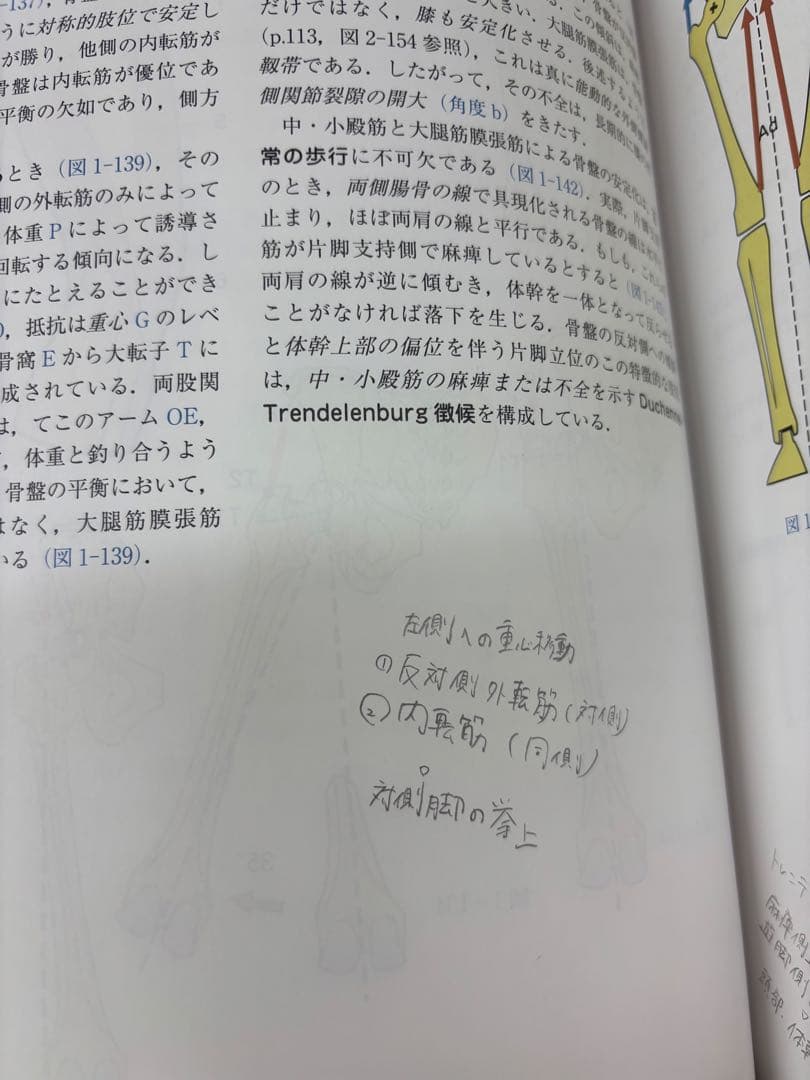 うに対称的肢位で安定し
が勝り，他側の内転筋が
骨盤は内転筋が優位であ
平衡の欠如であり，側方
るとき（図1-139），その
側の外転筋のみによって
体重Pによって誘導さ
回転する傾向になる．し
にたとえることができ
，抵抗は重心Gのレベ
骨窩Eから大転子Tに
成されている．両股関
は，てこのアームOE，
，体重と釣り合うよう
骨盤の平衡において，
はなく，大腿筋膜張筋
いる（図1-139）．
だけではなく，膝も安定化させる．後述するよう
(p.113，図2-154参照)，これは真に能動的な外側
靱帯である．したがって，その不全は，長期的に
側関節裂隙の開大（角度b）をきたす．
中・小殿筋と大腿筋膜張筋による骨盤の安定化は，
常の歩行に不可欠である（図1-142）．実際，片脚
のとき，両側腸骨の線で具現化される骨盤の線は
止まり，ほぼ両肩の線と平行である．もしも，これ
筋が片脚支持側で麻痺しているとすると
両肩の線が逆に傾むき，体幹を一体となって
ことがなければ落下を生じる．骨盤の反対側への
と体幹上部の偏位を伴う片脚立位のこの特徴的な
は，中・小殿筋の麻痺または不全を示すDuchenne
Trendelenburg徴候を構成している．
左側への重心移動
①反対側外転筋(対側)
②内転筋(同側)
対側脚の挙上
図1
トレンデ
麻痺側